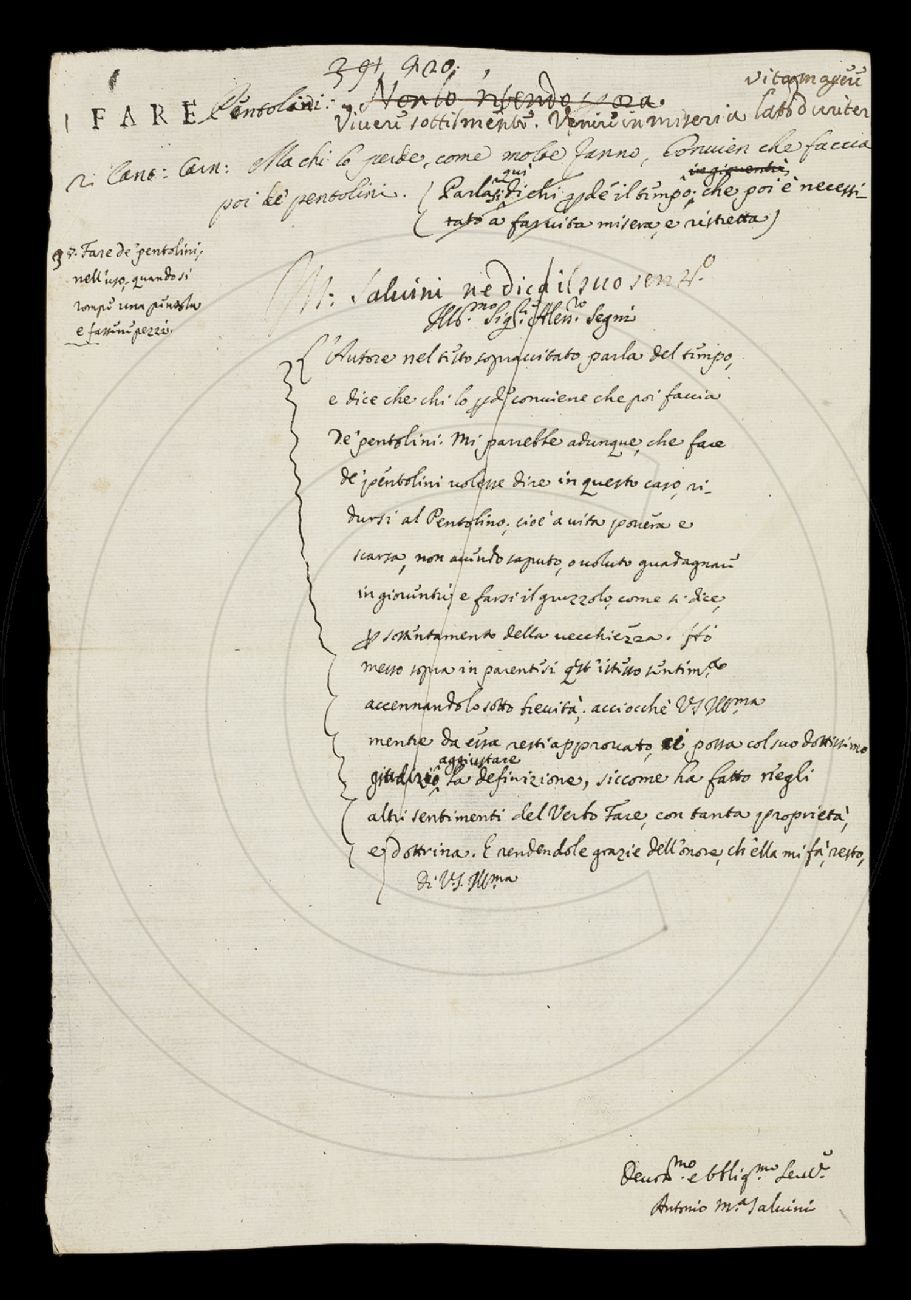 391. 920.
FARE Pentolini. Non lo intendo ora.
Vivere sottilmente. Venire in miseria
ri Cant: Carn: Ma chi lo perde, come molte fanno, Convien che faccia
poi de pentolini. (Parlasi qui di chi perde il tempo in gioventù, che poi è necessi-
tato a far vita misera, e ristretta)
39. Fare de' pentolini,
nell'uso, quando si
rompe una pentola
e fassene pezzi.
M: Salvini ne dica il suo sen.to
Ill.mo Sig.r Aless.ro Segni
L'Autore nel testo sopraccitato parla del tempo,
e dice che chi lo perde conviene che poi faccia
de' pentolini. Mi parrebbe adunque, che fare
de' pentolini volesse dire in questo caso, ri-
dursi al Pentolino; cioè a vita povera e
scarsa, non avendo saputo, o voluto guadagnare
in gioventù, e farsi il gruzzolo, come si dice,
per sostentamento della vecchiezza. Ho
messo sopra in parentesi quest'istesso sentim.to
accennandolo sotto brevità; acciocchè V.S. Ill.ma
mentre da essa resti approvato, possa col suo dottissimo
giudizio aggiustare la definizione, siccome ha fatto negli
altri sentimenti del Verbo Fare, con tanta proprietà,
e dottrina. E rendendole grazie dell'onore, ch'ella mi fa, resto,
di V.S. Ill.ma
Devot.mo e obblig.mo Serv.e
Antonio M.a Salvini